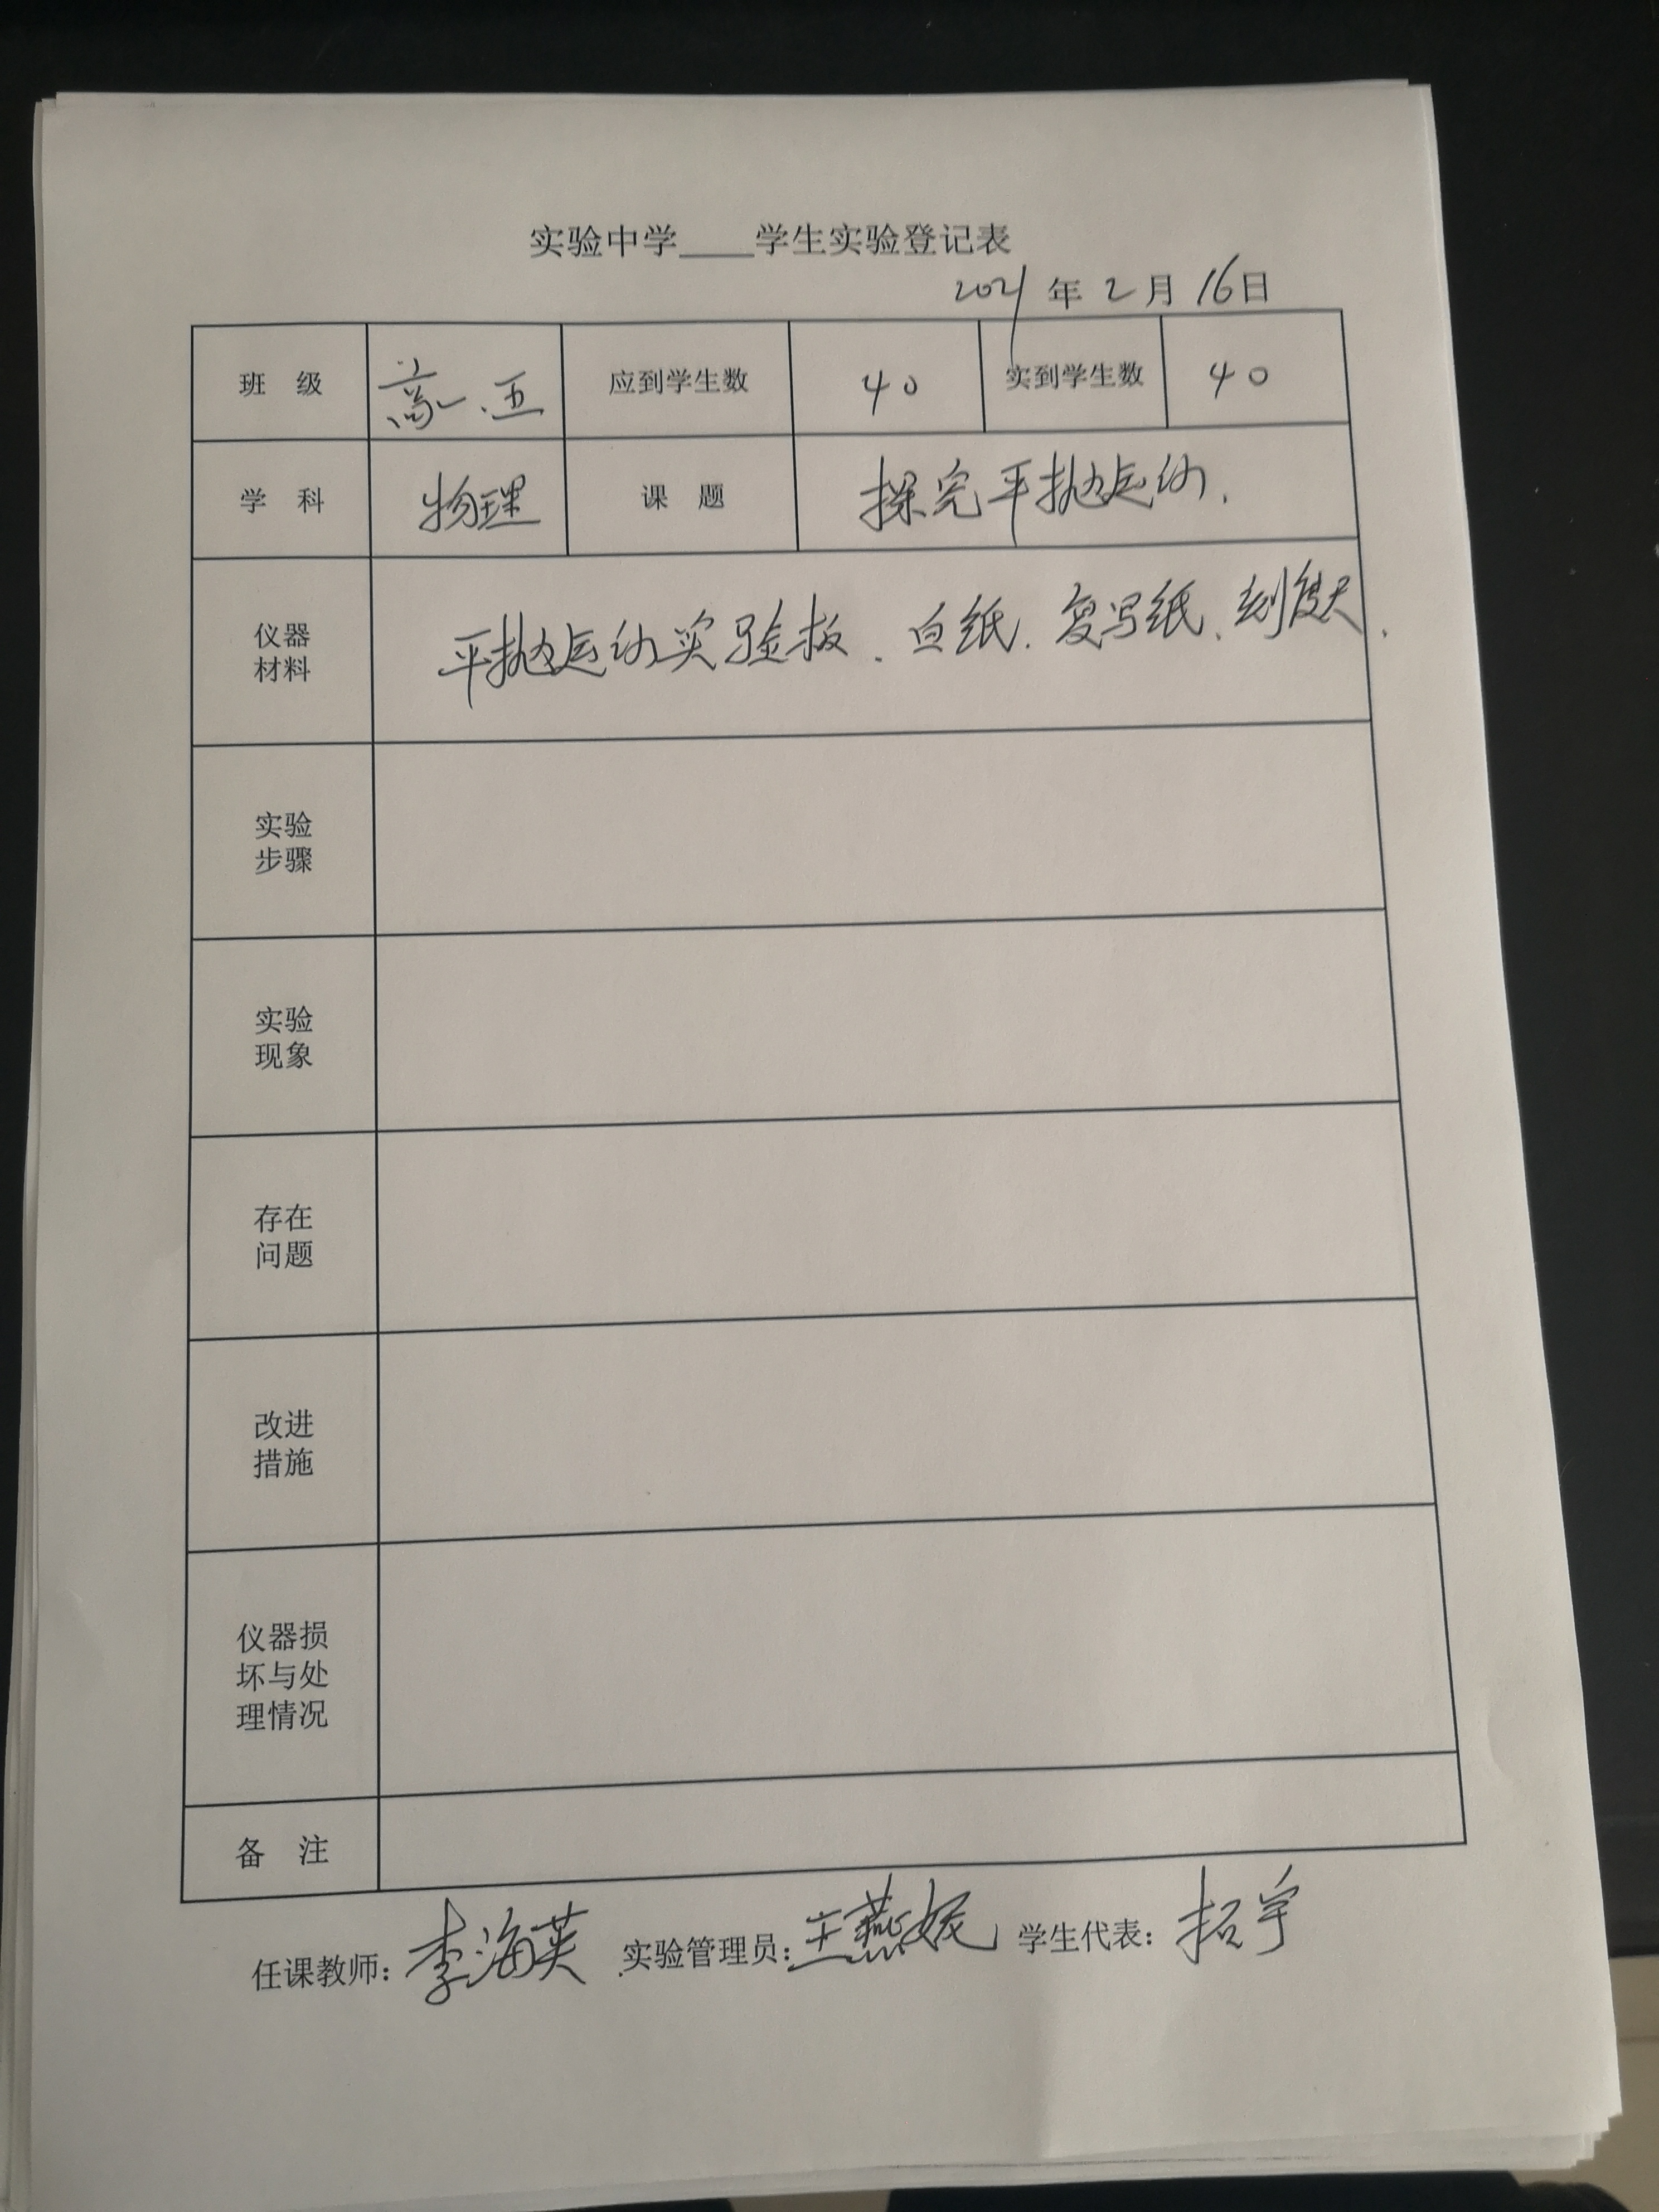 实验中学____学生实验登记表
2021年2月16日
班 级 高一.五 应到学生数 40 实到学生数 40
学 科 物理 课 题 探究平抛运动.
仪器
材料
平抛运动实验板、白纸、复写纸、刻度尺.
实验
步骤
实验
现象
存在
问题
改进
措施
仪器损
坏与处
理情况
备 注
任课教师: 李海英 实验管理员: 王燕妮 学生代表: 拓宇